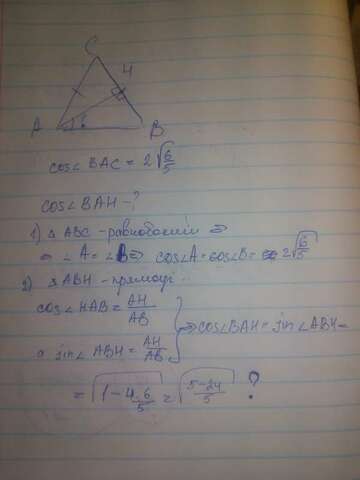 C
H
A ? B
cos∠BAC = 2√6/5
cos∠BAH - ?
1) △ABC - равнобедрен ⇒
⇒ ∠A = ∠B ⇒ cos∠A = cos∠B = 2√6/5
2) △ABH - прямоуг.
cos∠HAB = AH/AB
а sin∠ABH = AH/AB } ⇒ cos∠BAH = sin∠ABH =
= √(1 - 4·6/5) = √((5-24)/5) ?